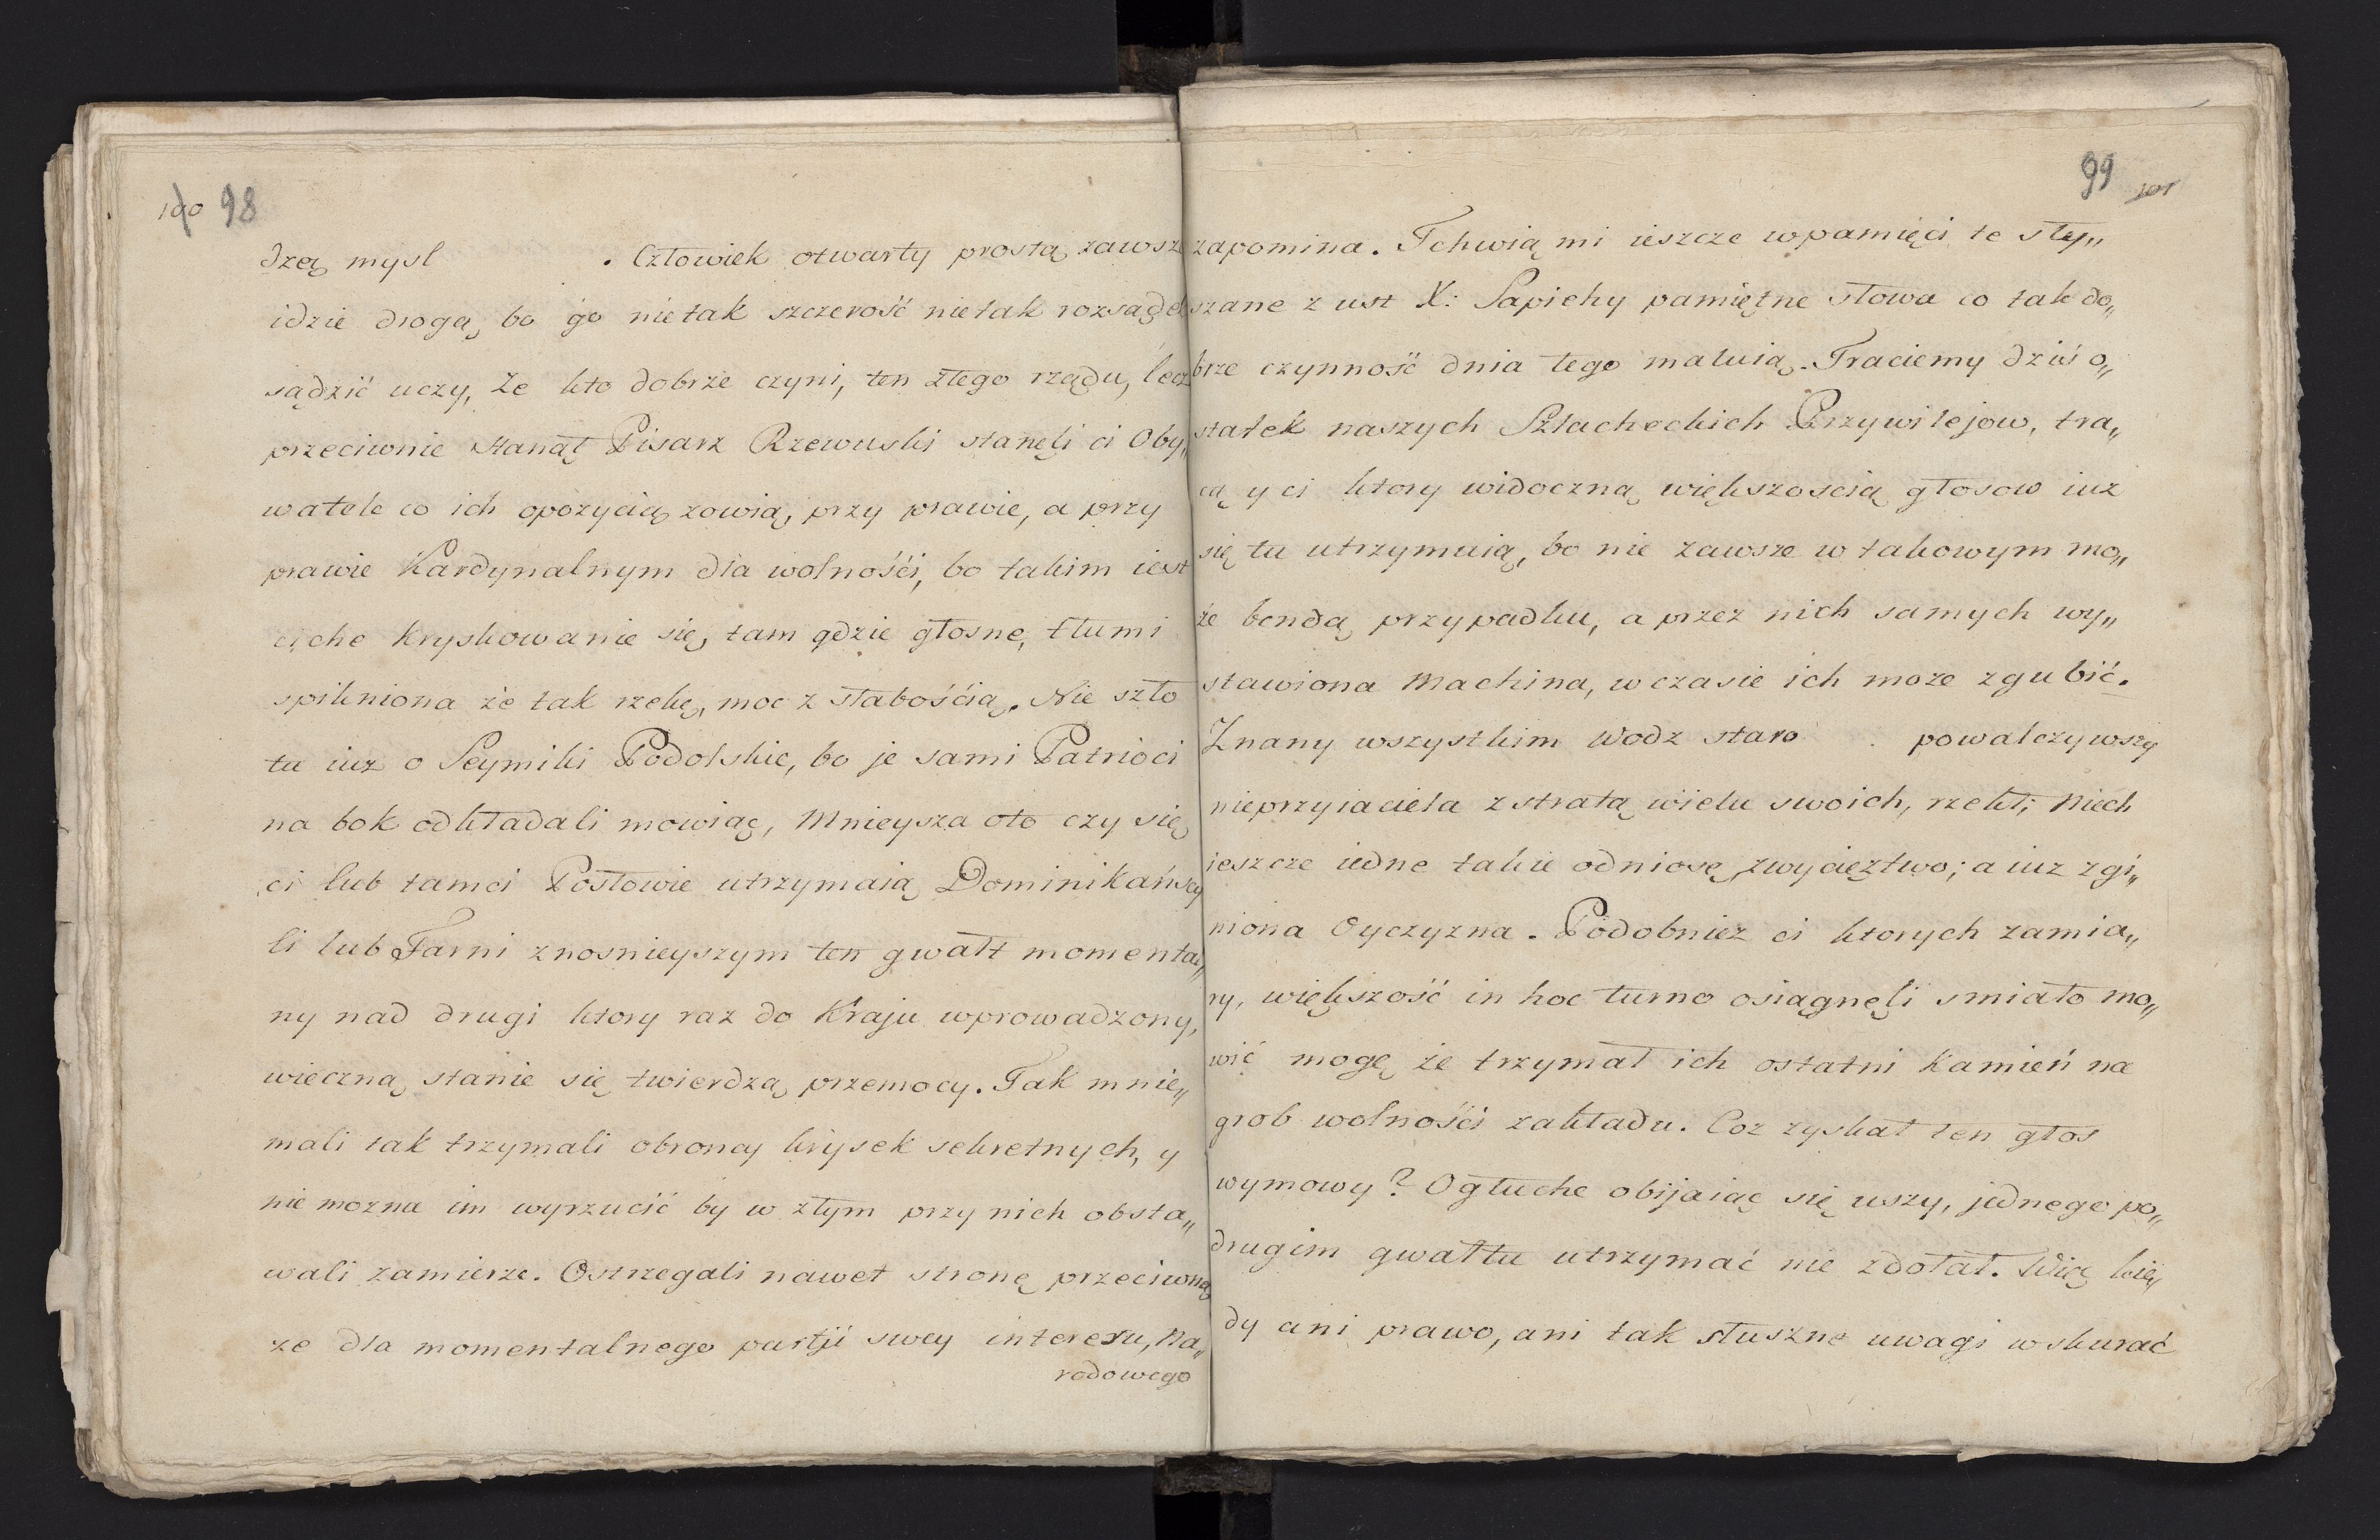 100 98
dzeą mysl . Człowiek otwarty prostą zawsze
idzie drogą, bo go nietak szczerość nietak rozsądek
sądzić uczy, że kto dobrze czyni, ten złego rządu, lecz
przeciwnie stanął Pisarz Rzewuski staneli ci Oby„
watele co ich opozycią zowią, przy prawie, a przy
prawie Kardynalnym dla wolnośći, bo takim iest
ciche kryskowanie się, tam gdzie głosne, tłumi
spikniona że tak rzekę, moc z słabośćią. Nie szło
tu iuz o Seymiki Podolskie, bo je sami Patrioci
na bok odkładali mowiąc, Mnieysza oto czy się
ci lub tamci Posłowie utrzymaią Dominikańscy
li lub Farni znosnieyszym ten gwałt momental„
ny nad drugi ktory raz do Kraju wprowadzony,
wieczną stanie się twierdzą przemocy. Tak mnie„
mali tak trzymali obroncy krysek sekretnych, y
nie mozna im wyrzucić by w złym przy nich obsta„
wali zamierze. Ostrzegali nawet stronę przeciwną
ze dla momentalnego partji swey interesu, Na„
rodowego
99 101
zapomina. Tchwią mi ieszcze w pamięći te sły„
szane z ust X: Sapiehy pamiętne słowa co tak do„
brze czynność dnia tego maluią. Traciemy dziś o„
statek naszych Szlacheckich Przywilejow, tra„
cą y ci ktory widoczną większoscią głosow iuz
się tu utrzymuią, bo nie zawsze w takowym mo„
że bendą przypadku, a przez nich samych wy„
stawiona Machina, w czasie ich moze zgubić.
Znany wszystkim Wodz staro . powalczywszy
nieprzyiaciela z stratą wielu swoich, rzekł; Niech
ieszcze iedne takie odniosę zwycięztwo; a iuz zgi„
niona Oyczyzna. Podobniez ci ktorych zamia„
ry, większość in hoc turno osiągnęli smiało mo„
wić mogę że trzymał ich ostatni Kamień na
grob wolnośći zakładu. Coz zyskał ten głos
wymowy? Ogłuche obijaiąc się uszy, jednego po„
drugim gwałtu utrzymać nie zdołał. Więc kie„
dy ani prawo, ani tak słuszne uwagi wskurać